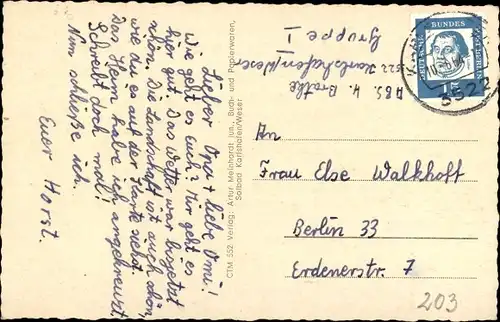 Lieber Opi + liebe Omi!
Wie geht es Euch? Mir geht es
hier gut. Das Wetter war bis jetzt
schön. Die Landschaft ist auch schön,
wie du es auf der Karte siehst.
Das Heim habe ich angekreuzt.
Schreibt doch mal!
Nun schließe ich.
Euer Horst.
CTM 552 Verlag: Artur Meinhardt jun., Buch- und Papierwaren,
Solbad Karlshafen/Weser
Abs. H.
3522 Karlshafen/Weser
Gruppe I
DEUTSCHE BUNDESPOST BERLIN
15
3522
An
Frau Else Walkhoff
Berlin 33
Erdenerstr. 7
203